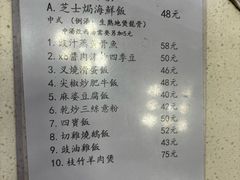 A. 芝士焗海鮮飯 48元
中式 (例湯: 生熟地煲龍骨)
1. 豉汁蒸 骨魚 58元
2. xo醬肉 四季豆 50元
3. 叉燒滑蛋飯 46元
4. 尖椒炒肥牛飯 50元
5. 麻婆豆腐飯 50元
6. 乾炒三絲意粉 42元
7. 四寶飯 50元
8. 切雞燒鵝飯 52元
9. 豉油雞飯 43元
10. 枝竹羊肉煲 75元